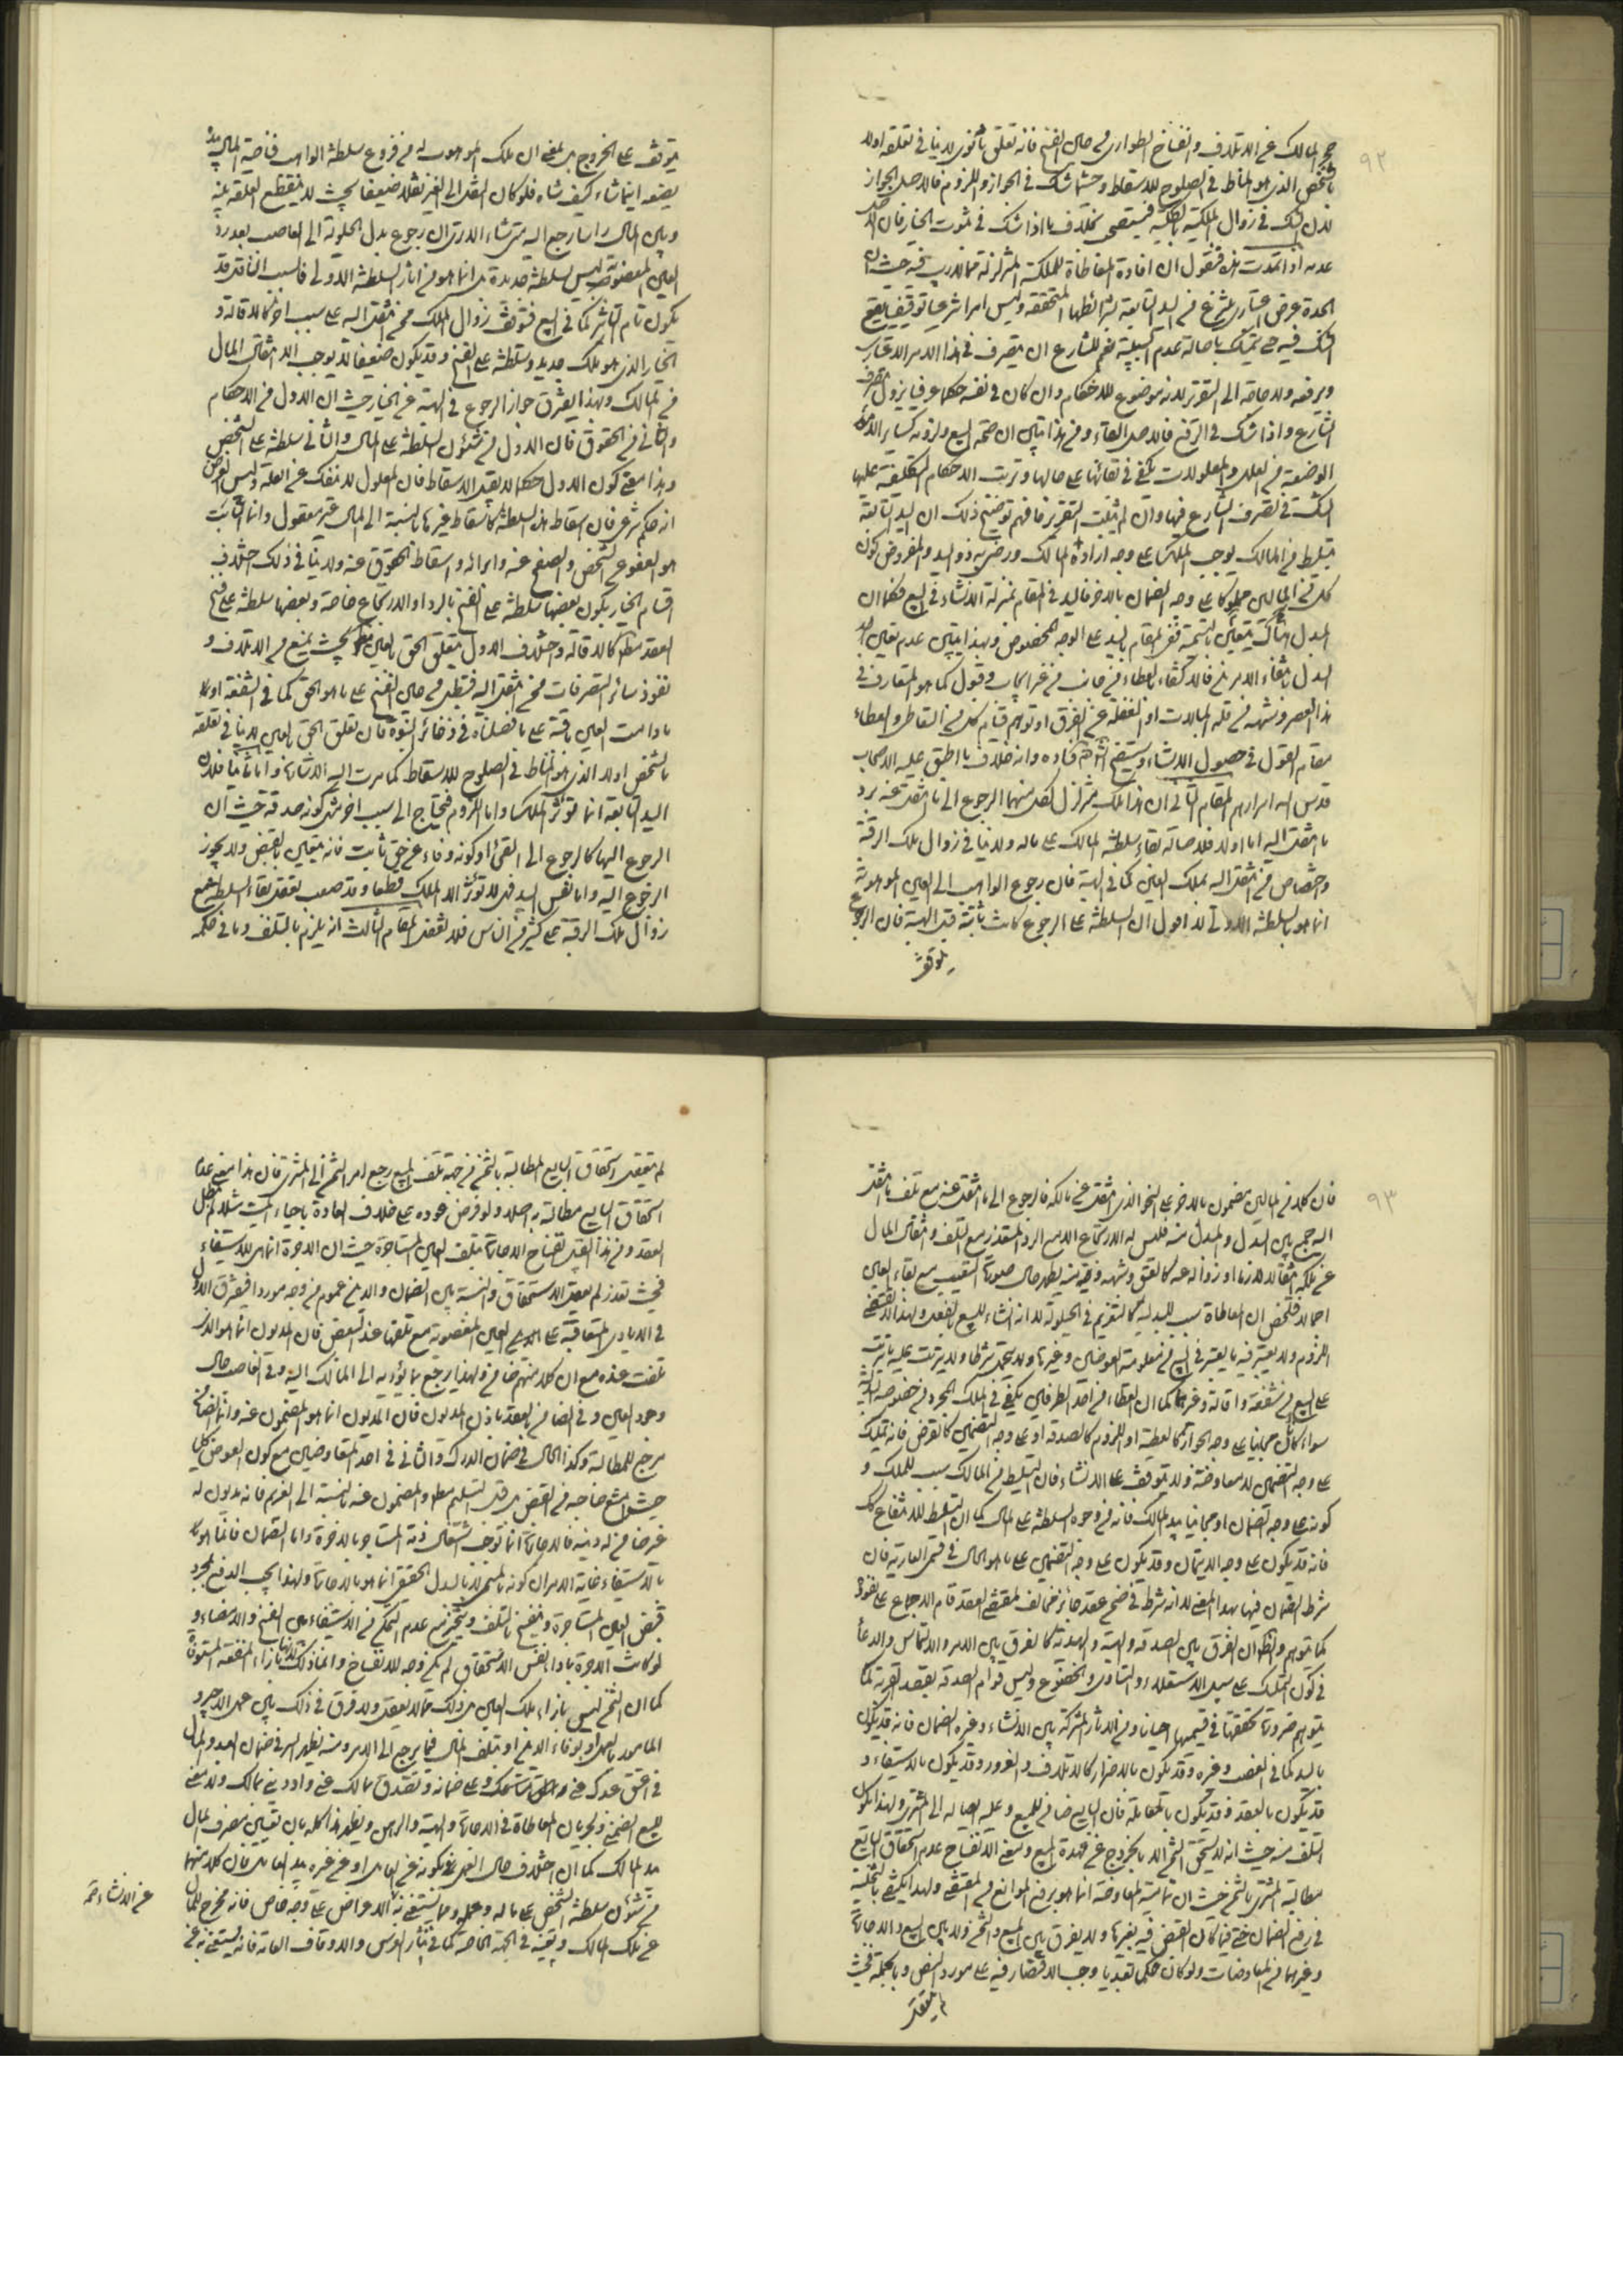 ٩٢
حجر المالك عن الاتلاف وانفساخ الطواري في حال الفسخ فانه تعلق ثانوي لا ينافي تعلقه اولا
بالشخص الذي هو المناط في الصلوح للاسقاط وحيثما شك في الجواز واللزوم فالاصل الجواز
لان الشك في زوال الملكية فيستصحب بخلاف ما اذا شك في ثبوت الخيار فان الاصل
عدمه اذا تمهدت هذه فنقول ان افادة المعاطاة للملكية المتزلزلة مما لا ريب فيه حيث ان
الشك فيه حتى يتمسك باصالة عدم السببية نعم للشارع ان يتصرف في هذا الامر الاعتباري
ويرفعه ولا حاجة الى التقرير لانه موضوع للاحكام وان كان في نفسه حكما عرفيا يزول بتصرف
الشارع واذا شك في الرفع فالاصل البقاء ومن هذا تبين ان صحة البيع ولزومه كسائر الامور
الوضعية من العلل والمعلولات يكفي في بقائها على حالها وترتب الاحكام التكليفية عليها
الشك في تصرف الشارع فيها وان لم يثبت التقرير فافهم توضيح ذلك ان اليد التابعة
لتسليط من المالك توجب الملك على وجه اراده المالك ورضي به ذو اليد والمفروض كون
كل من المالين مملوكا على وجه الضمان بالاخر فاليد في المقام بمنزلة الانشاء في البيع فكما ان
البدل هناك يتعين بالتسمية ففي المقام باليد على الوجه المخصوص وبهذا تبين عدم تعين احد
هذا العصر ومنشؤه من قلة المبالات او الغفلة عن الفرق او توهم قيام كل من التعاطي والعطاء
مقام القول في حصول الانشاء وسيتضح انش‍ فساده وانه خلاف ما اطبق عليه الاصحاب
قدس الله اسرارهم المقام الثاني ان هذا الملك متزلزل لكل منهما الرجوع الى ما انتقل عنه برد
ما انتقل اليه اما اولا فلاصالة بقاء سلطنة المالك على ماله ولا ينافي زوال ملك الرقبة
واختصاص من انتقل اليه بملك العين كما في الهبة فان رجوع الواهب الى العين الموهوبة
انما هو بالسلطنة الاولى لا اقول ان السلطنة على الرجوع كانت ثابتة قبل الهبة فان الرجوع
يتوقف
يتوقف على الخروج بل المعنى ان ملك الموهوب له من فروع سلطنة الواهب فناصية المال بيده
يضعه اينما شاء كيف شاء فلو كان النقل الى الغير نقلا ضعيفا بحيث لا ينقطع العلقة بينه
وبين المال راسا رجع اليه متى شاء الا ترى ان رجوع بدل الحيلولة الى الغاصب بعد رد
العين المغصوبة ليس لسلطنة جديدة بل انما هو من اثار السلطنة الاولى فالسبب الناقل قد
يكون تام التاثير كما في البيع فتوقف زوال الملك ممن انتقل اليه على سبب اخر كالاقالة و
الخيار الذي هو ملك جديد وسلطنة على الفسخ وقد يكون ضعيفا لا يوجب الا انتقال المال
من المالك وبهذا يفترق جواز الرجوع في الهبة عن الخيار حيث ان الاول من الاحكام
والثاني من الحقوق فان الاول من شئون السلطنة على المال والثاني سلطنة على الشخص
وهذا معنى كون الاول حكما لا يقبل الاسقاط فان المعلول لا ينفك عن العلة وليس الغرض
انه حكم شرعي فان اسقاط هذه السلطنة كاسقاط غيرها بالنسبة الى المال غير معقول وانما الثابت
هو العفو عن الشخص والصفح عنه وابرائه واسقاط الحقوق عنه ولا ينافي ذلك اختلاف
اقسام الخيار بكون بعضها سلطنة على الفسخ بالرد او الارتجاع خاصة وبعضها سلطنة على فسخ
العقد مطلقا كالاقالة واختلاف الاول بتعلق الحق بالعين بحيث يمنع من الاتلاف و
نفوذ سائر التصرفات ممن انتقل اليه فيبطل من حين الفسخ على ما هو الحق كما في الشفعة اولا
ما دامت العين باقية على ما فصلناه في ذخائر النبوة فان تعلق الحق بالعين لا ينافي تعلقه
بالشخص اولا الذي هو المناط في الصلوح للاسقاط كما مرت اليه الاشارة واما ثانيا فلان
اليد التابعة انما تؤثر الملك واما اللزوم فيحتاج الى سبب اخر مثل كونه صدقة حيث ان
الرجوع اليها كالرجوع الى القئ او كونه وفاء عن حق ثابت فانه يتعين بالقبض ولا يجوز
الرجوع اليه واما نفس اليد فلا تؤثر الا الملك قطعا وقد صعب تعقل بقاء السلطنة مع
زوال ملك الرقبة على كثير من الناس فلا تغفل المقام الثالث انه يلزم بالتلف وما في حكمه
٩٣
فان كلا من المالين مضمون بالاخر على النحو الذي انتقل عن مالكه فالرجوع الى ما انتقل عنه مع تلف ما انتقل
اليه جمع بين البدل والمبدل منه فليس له الارتجاع الا مع الرد المتعذر مع التلف وانتقال المال
عن ملكه انتقالا لازما او زواله عنه كالعتق وشبهه ومنه يظهر حال صورة التعيب مع بقاء العين
اجمالا فتلخص ان المعاطاة سبب للبدلية كالتغريم في الحيلولة لا انه انشاء للبيع بالفعل ولهذا لا يقتضي
اللزوم ولا يعتبر فيه ما يعتبر في البيع من معلومية العوضين وغيرها ولا يتحمل شرطا ولا يترتب عليه ما يترتب
على البيع من شفعة واقالة وغيرهما كما ان العطاء من احد الطرفين يكفي في الملك المجرد من خصوصية البدلية
سواء كان مجانيا على وجه الجواز كالعطية او اللزوم كالصدقة او على وجه التضمين كالقرض فانه تمليك
على وجه التضمين لا معاوضة ولا يتوقف على الانشاء فان التسليط من المالك سبب للملك و
كونه على وجه الضمان او مجانيا بيد المالك فانه من وجوه السلطنة على المال كما ان التسليط للانتفاع كك
فانه قد يكون على وجه الايتمان وقد يكون على وجه التضمين على ما هو الحال في قسمي العارية فان
شرط الضمان فيها بهذا المعنى لا انه شرط في ضمن عقد جائز مخالف لمقتضى العقد قام الاجماع على نفوذه
كما توهم والظ ان الفرق بين الصدقة والهبة والهدية كالفرق بين الامر والالتماس والدعاء
في كون التمليك على سبيل الاستعلاء والتساوي والخضوع وليس قوام الصدقة بقصد القربة كما
يتوهم ضرورة تحققها في قسميها احيانا ومن الاثار المشتركة بين الانشاء وغيره الضمان فانه قد يكون
باليد كما في الغصب وغيره وقد يكون بالاضرار كالاتلاف والغرور وقد يكون بالاستيفاء و
قد يكون بالعقد وقد يكون بالمقابلة فان البايع ضامن للمبيع وعليه ايصاله الى المشتري ولهذا يكون
التلف منه حيث انه لا يستحق الثمن الا بالخروج عن عهدة المبيع ومعنى الانفساخ عدم استحقاق البايع
مطالبة المشتري بالثمن حيث ان تمامية المعاوضة انما هو برفع الموانع من المقتضى ولهذا يكتفى بالتخلية
في رفع الضمان حتى فيما كان القبض فيه بغيرها ولا يفرق بين المبيع والثمن ولا بين البيع والاجارة
وغيرهما من المعاوضات ولو كان حكما تعبديا وجب الاقتصار فيه على مورد النص وبالجملة فحيث
لم يتعقل
لم يتعقل استحقاق البايع المطالبة بالثمن من جهة تلف المبيع رجع امر الثمن الى المشتري فان هذا معنى عدم
استحقاق البايع مطالبته به اصلا ولو فرض عوده على خلاف العادة باحياء الميت مثلا لم يبطل
العقد ومن هذا القبيل انفساخ الاجارة بتلف العين المستاجرة حيث ان الاجرة انما هي للاستيفاء
فحيث تعذر لم يعقل الاستحقاق والنسبة بين الضمان والدين عموم من وجه موردا فيفترق الاول
في الايادي المتعاقبة على العين المغصوبة مع تلفها عند البعض فان المديون انما هو الذي
تلفت عنده مع ان كلا منهم ضامن ولهذا يرجع بما يؤديه الى المالك اليه وفي الغاصب حال
وجود العين وفي الضامن بالعقد باذن المديون فان المديون انما هو المضمون عنه وانما الضامن
مرجع للمطالبة وكذا الحال في ضمان الدرك والثاني في احد المتعاوضين مع كون العوض كلي
حيث امتنع صاحبه من القبض بل قبل التسليم مطلقا والمضمون عنه بالنسبة الى الغريم فانه مديون له
بالاستيفاء غاية الامر ان كونه بالمسمى لا بالبدل الحقيقي انما هو بالاجارة ولهذا يجب الدفع بمجرد
قبض العين المستاجرة وينفسخ بالتلف ويتخير مع عدم التمكن من الاستيفاء بين الفسخ والامضاء و
لو كانت الاجرة بازاء نفس الاستحقاق لم يكن وجه للانفساخ وانما ذلك لانها بازاء المنفعة المستوفاة
كما ان الثمن ليس بازاء ملك العين بل ذلك مما لا يعقل ولا فرق في ذلك بين عمل الاجير و
المامور بالعمل او بوفاء الدين او بتلف المال فيما يرجع الى الامر ومنه يظهر السر في ضمان العبد والمال
في اعتق عبدك عني والق متاعك وعلي ضمانه وتصدق بمالك عني واد ديني بمالك ولا معنى
للبيع الضمني ولجريان المعاطاة في الاجارة والهبة والرهن ويظهر هذا كله بان تعيين مصرف المال
بيد المالك كما ان اختلاف حال العمل بكونه عن العامل او عن غيره بيد العامل فان كلا منهما
من شئون سلطنة الشخص على ماله وعمله ومما يستغني به الاعراض على وجه خاص فانه مخرج للمال
عن ملك المالك وتعينه في الجهة الخاصة كما في نثار العرس والاوقاف العامة فانه يستغنى به عن
عن الانشاء حتى